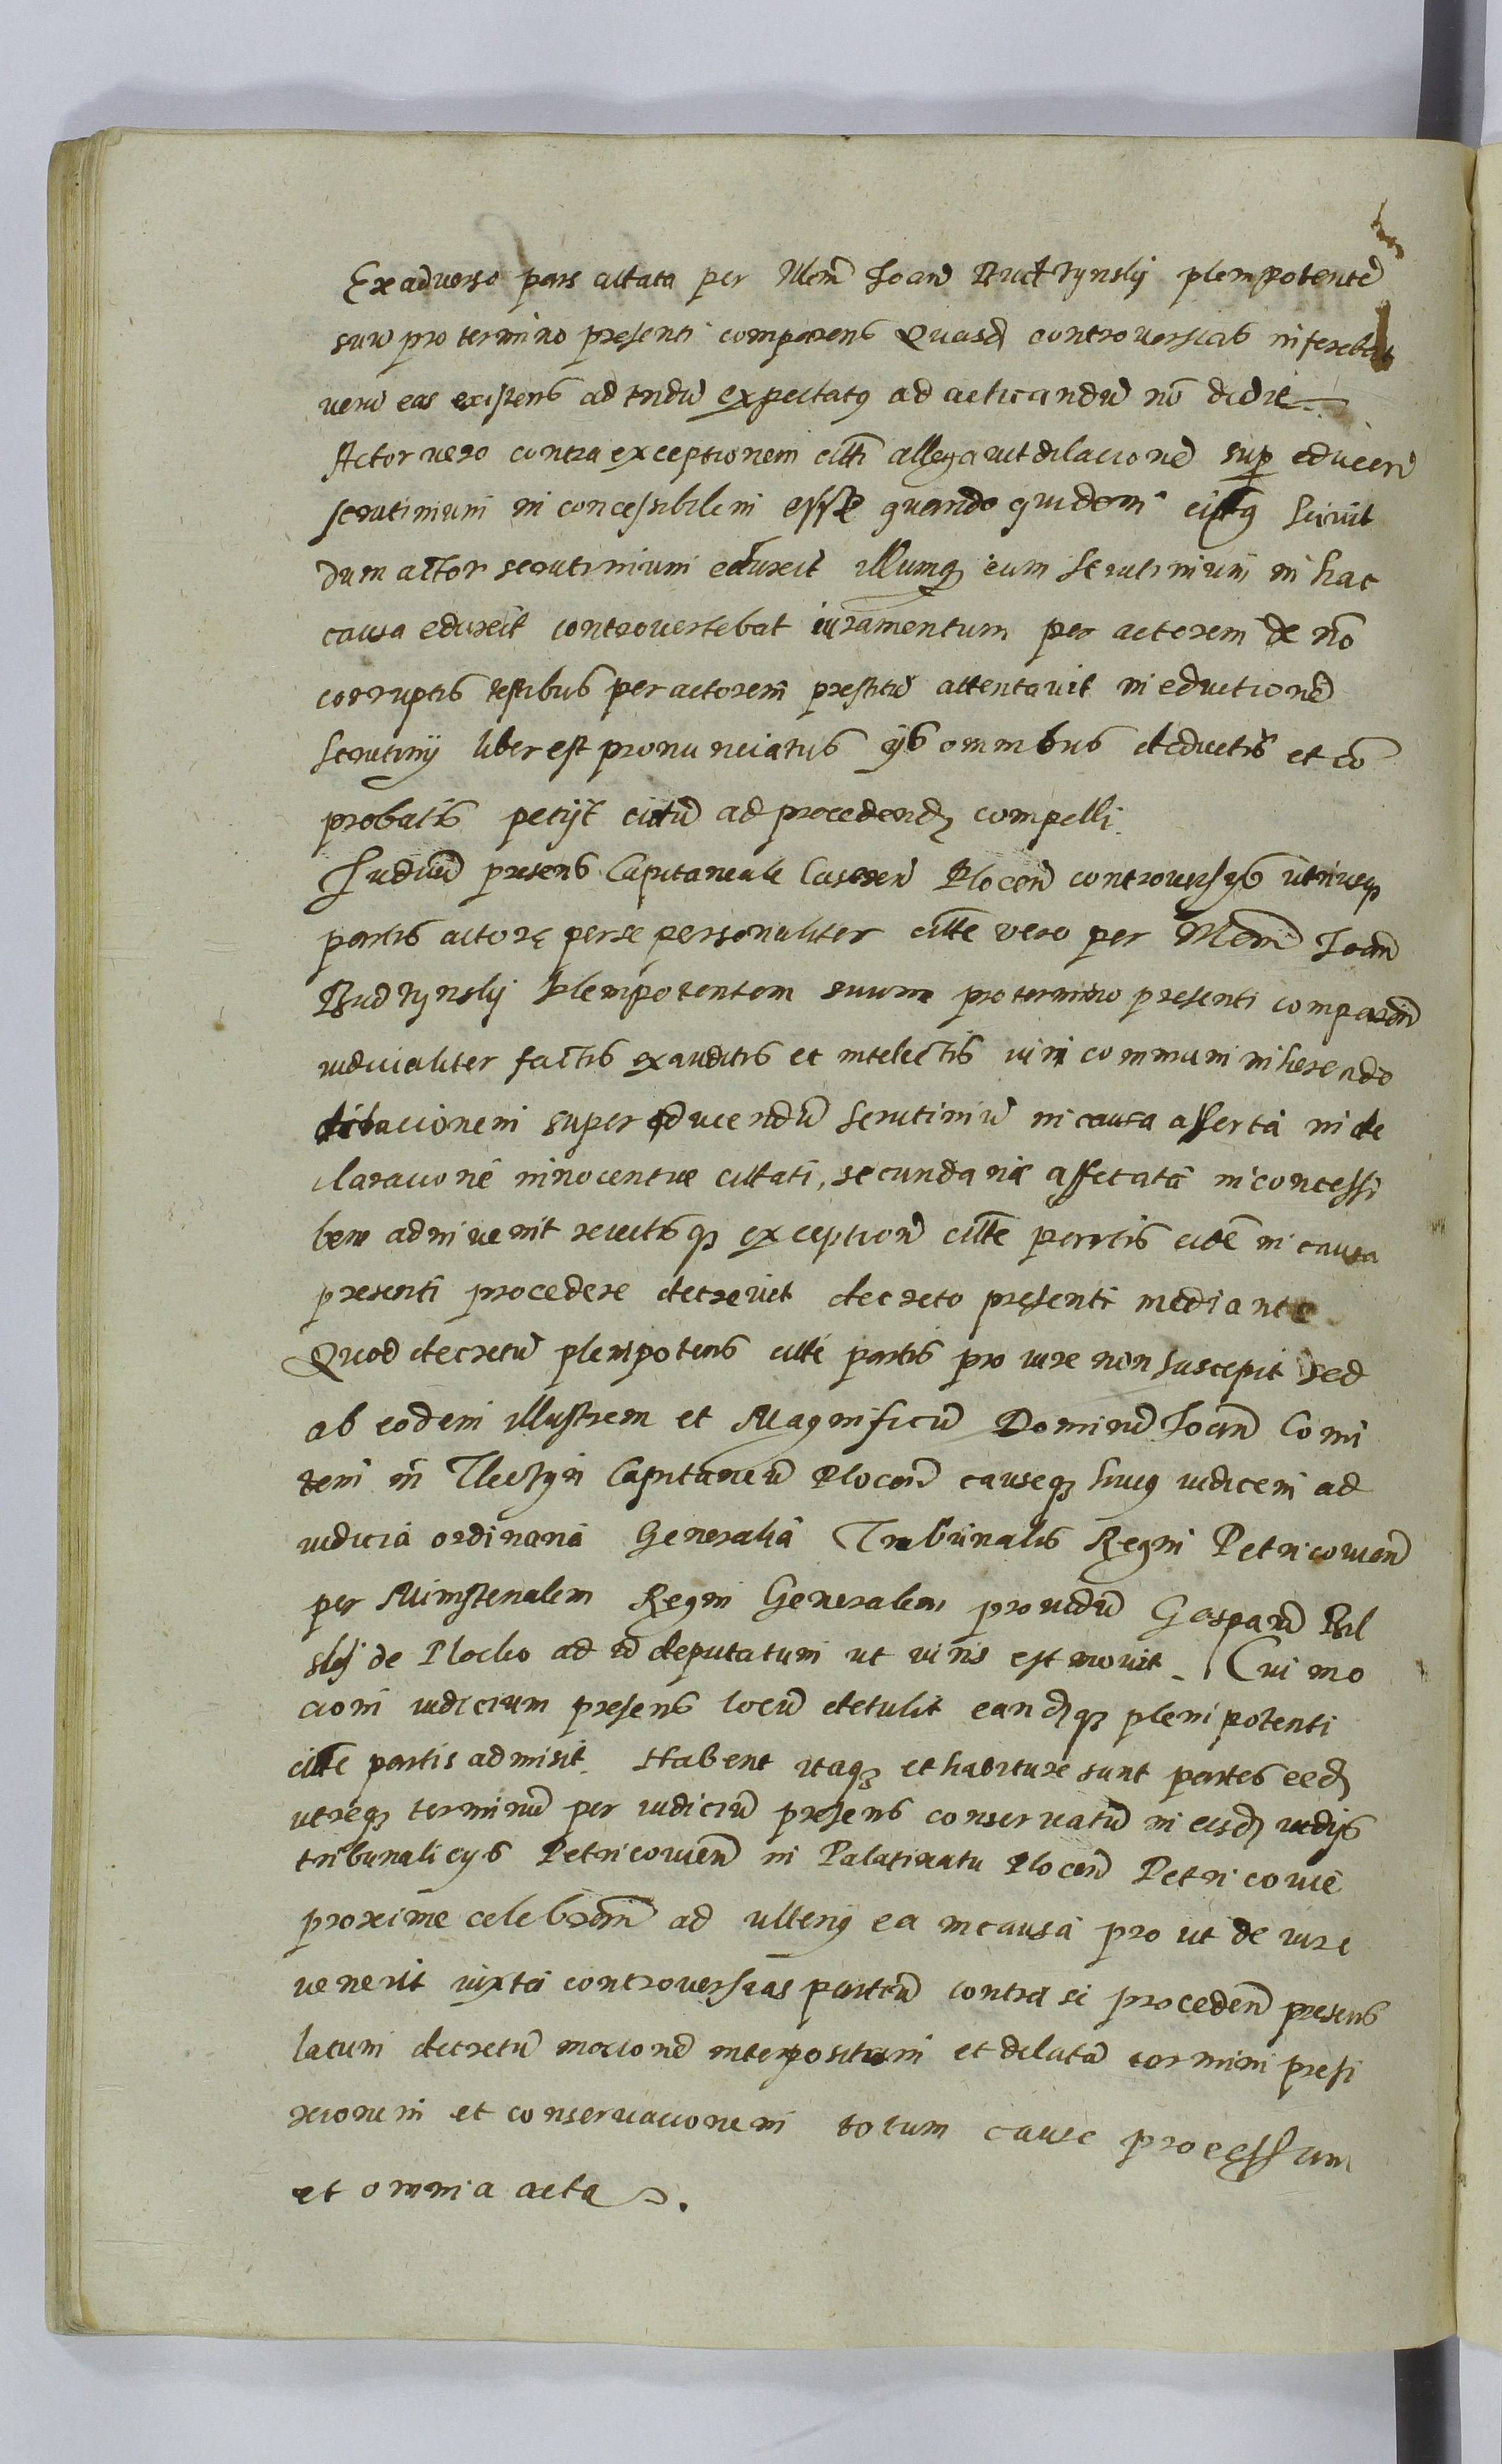 Ex adverso pars citata per Nlem̃ Joan̄ Budzynskj plenipotentē
suū pro termino presenti comparens Quasd controversias inferebat
verū eas existens ad trīdū expectatꝯ ad acticandū nō dedit
Actor vero contra exceptionem citti allegavit dilacionē sup educen̄
scrutinium in concessibilem esse quandoquidem citꝯ scivit
dum actor scrutinium eduxit illumqꝫ cum scrutinium in hac
causa eduxit controvertebat iuramentum per actorem de nō
corruptis testibus per actorem prestitū attentavit in eductionē
scrutinij liber est pronunciatus ijs omnibus deductis et cō
probatis petijt cittū ad procedendꝫ compelli.
Judiciū presens Capitaneale Castren̄ Plocen̄ controversijs utriusqꝫ
partis actore per se personaliter citte vero per Nlem̃ Joan̄
Budzynskj plenipotentem suum pro termino presenti comparen̄
iudicialiter factis exauditis et intelectis iuri communi inherendo
dilacionem super educendū scrutiniū in causa asserta in de
claracionē innocentiae cittati, secundariā affectatā inconcessi
bem adinvenit reiectisqꝫ exception̄ citte partis eidē in causa
presenti procedere decrevit decreto presenti mediante
Quod decretū plenipotens citte partis pro iure non suscepit sed
ab eodem illustrem et Magnificū Dominū Joan̄ Comi
tem in Tleczyn Capitaneū Plocen̄ causeqꝫ huiꝯ iudicem ad
iudicia ordinaria Generalia Tribunalis Regni Petricovien̄
per Ministerialem Regni Generalem providū Gasparū Bil
skj de Plocko ad id deputatum ut iuris est movit. Cui mo
cioni iudicium presens locū detulit eandqꝫ plenipotenti
citte partis admisit. Habent itaqꝫ et habiture sunt partes eed
utreqꝫ terminū per iudiciū presens conservatū in eisd iudijs
tribunalicijs Petricovien̄ in Palatinatu Plocen̄ Petricovie
proxime celebran̄ ad ulteriꝯ ea in causa pro ut de iure
venerit iuxta controversias partiū contra se proceden̄ presens
latum decretū mocionē interpositam et delatā termini prefi
xionem et conservacionem totum cause processum
et omnia acta